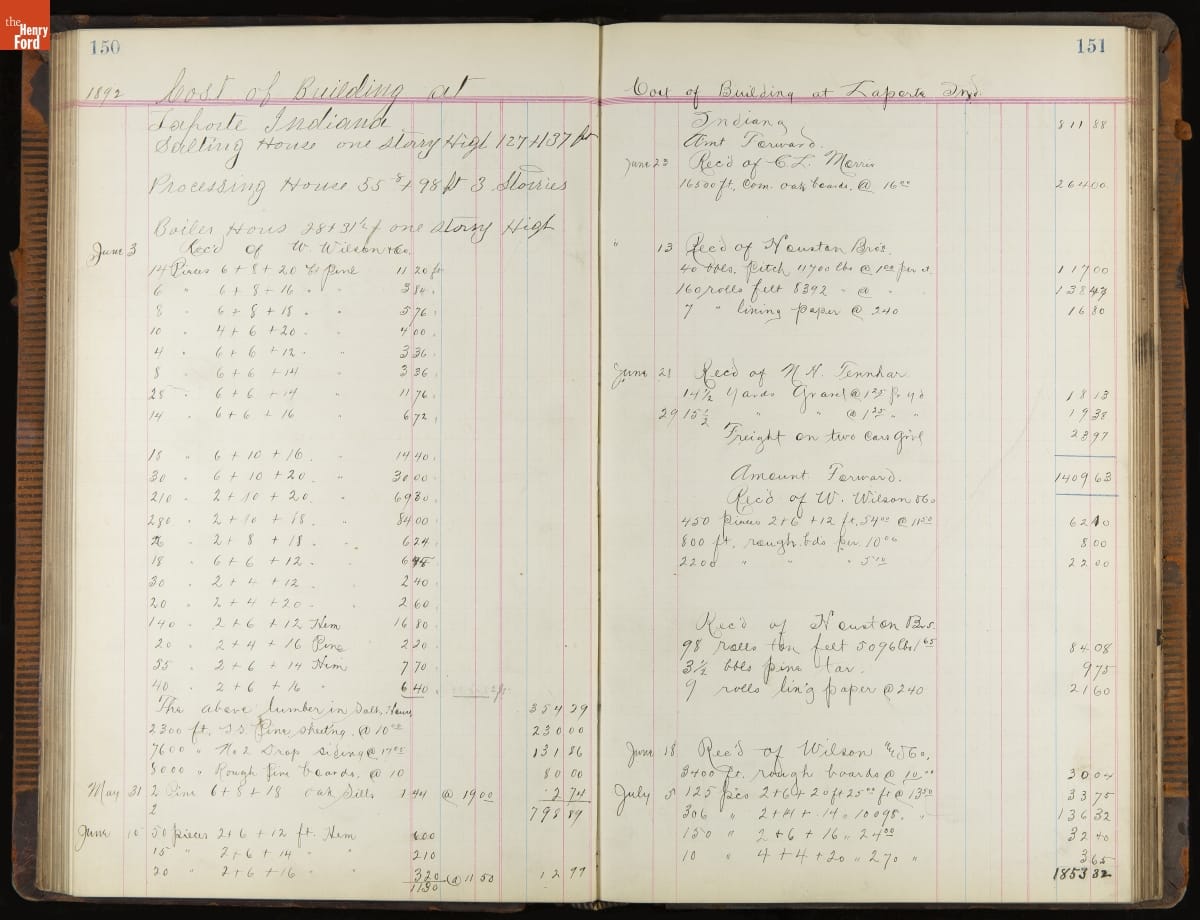 the
Henry
Ford
150
1892 Cost of Building at
Laporte Indiana
Salting House one storry High 127+137 ft
Processing House 55-8+98 ft 3 Storries
Boiler Hous 28+31½ f one storry High
June 3 Rec'd of W. Wilson & Co.
14 Pieces 6+8+20 ft Pine 1120 ft
6 " 6+8+16 " " 384 "
8 " 6+8+18 " " 576 "
10 " 4+6+20 " " 400 "
4 " 6+6+12 " " 336 "
8 " 6+6+14 " 336 "
28 " 6+6+14 " 1176 "
14 " 6+6+16 " 672 "
18 " 6+10+16 " 1440 "
30 " 6+10+20 " " 3000 "
210 " 2+10+20 " 6930 "
280 " 2+10+18 " " 8400 "
26 " 2+8+18 " " 624 "
18 " 6+6+12 " " 648
30 " 2+4+12 " 240 "
20 " 2+4+20 " " 260 "
140 " 2+6+12 Hem 1680 "
20 " 2+4+16 Pine 220 "
55 " 2+6+14 Him 770 "
40 " 2+6+16 " 640 "
The above lumber in Salt House 354 29
2300 ft. Pine sheeting @ 10 00 23 00
7600 " No 2 Drop siding @ 17 00 131 86
8000 " Rough Pine boards. @ 10 80 00
May 31 2 Pine 6+8+18 oak Sills 144 @ 19 00 2 74
2 798 89
June 10 50 pieces 2+6+12 ft. Hem 600
15 " 2+6+14 " " 210
20 " 2+6+16 " 320 12 99
1130 @ 11 50
151
Cost of Building at Laporte Ind.
Indiana 811 88
Amt Forward.
June 23 Rec'd of C. L. Morris
16500 ft. Com. oak boards. @ 16 00 264 00
" 13 Rec'd of Houston Bros.
40 bbls. pitch 11700 lbs @ 1 00 per 117 00
160 rolls felt 8392 " @ " 138 47
7 " lining paper @ 240 16 80
June 21 Rec'd of N. H. Tennhar
14½ Yards Gravel @ 1 25 pr yd 18 13
29 15½ " " @ 1 25 " " 19 38
Freight on two cars Grvl 23 97
Amount Forward. 1409 63
Rec'd of W. Wilson & Co
450 pieces 2+6+12 ft. 5400 @ 11 50 62 10
800 ft. rough bds per 10 00 8 00
2200 " " " 22 00
Rec'd of Houston Bros.
98 rolls tan felt 5096 lbs 1 65 84 08
3½ bbls pine tar 9 75
9 rolls lin'g paper @ 240 21 60
June 18 Rec'd of Wilson & Co.
3400 ft. rough boards @ 10.00 30 04
July 5 125 pics 2+6+20 ft 2500 ft @ 13 50 33 75
306 " 2+14+14 " 10098 " " 136 32
150 " 2+6+16 " 2400 32 40
10 " 4+4+20 " 270 " 3 65
1853 32